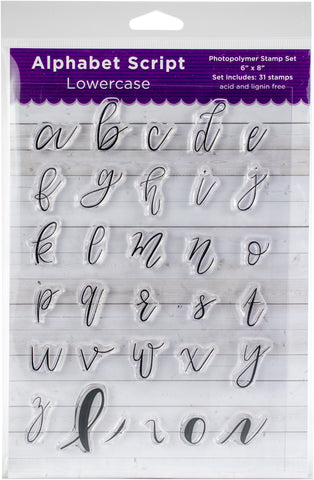 Alphabet Script
Lowercase
Photopolymer Stamp Set
6" x 8"
Set Includes: 31 stamps
acid and lignin free
a b c d e
f g h i j
k l m n o
p q r s t
u v w x y
z l o